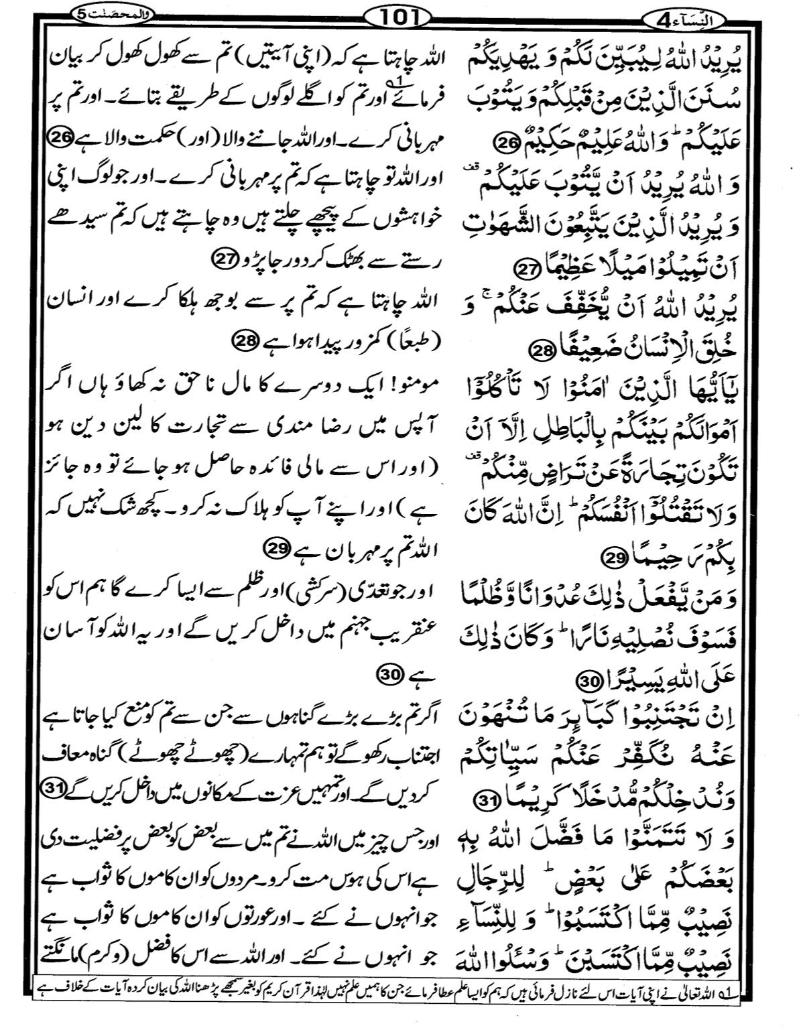 النساء ٤
101
والمحصنت 5
يُرِيۡدُ اللّٰهُ لِيُبَيِّنَ لَكُمۡ وَ يَهۡدِيَكُمۡ
سُنَنَ الَّذِيۡنَ مِنۡ قَبۡلِكُمۡ وَ يَتُوۡبَ
عَلَيۡكُمۡ ؕ وَاللّٰهُ عَلِيۡمٌ حَكِيۡمٌ 26
وَ اللّٰهُ يُرِيۡدُ اَنۡ يَّتُوۡبَ عَلَيۡكُمۡ قف
وَ يُرِيۡدُ الَّذِيۡنَ يَتَّبِعُوۡنَ الشَّهَوٰتِ
اَنۡ تَمِيۡلُوۡا مَيۡلًا عَظِيۡمًا 27
يُرِيۡدُ اللّٰهُ اَنۡ يُّخَفِّفَ عَنۡكُمۡ ۚ وَ
خُلِقَ الۡاِنۡسَانُ ضَعِيۡفًا 28
يٰۤاَيُّهَا الَّذِيۡنَ اٰمَنُوۡا لَا تَاۡكُلُوۡۤا
اَمۡوَالَكُمۡ بَيۡنَكُمۡ بِالۡبَاطِلِ اِلَّاۤ اَنۡ
تَكُوۡنَ تِجَارَةً عَنۡ تَرَاضٍ مِّنۡكُمۡ قف
وَلَا تَقۡتُلُوۡۤا اَنۡفُسَكُمۡ ؕ اِنَّ اللّٰهَ كَانَ
بِكُمۡ رَحِيۡمًا 29
وَ مَنۡ يَّفۡعَلۡ ذٰلِكَ عُدۡوَانًا وَّ ظُلۡمًا
فَسَوۡفَ نُصۡلِيۡهِ نَارًا ؕ وَكَانَ ذٰلِكَ
عَلَى اللّٰهِ يَسِيۡرًا 30
اِنۡ تَجۡتَنِبُوۡا كَبَآٮِٕرَ مَا تُنۡهَوۡنَ
عَنۡهُ نُكَفِّرۡ عَنۡكُمۡ سَيِّاٰتِكُمۡ
وَنُدۡخِلۡكُمۡ مُّدۡخَلًا كَرِيۡمًا 31
وَ لَا تَتَمَنَّوۡا مَا فَضَّلَ اللّٰهُ بِهٖ
بَعۡضَكُمۡ عَلٰى بَعۡضٍ ؕ لِلرِّجَالِ
نَصِيۡبٌ مِّمَّا اكۡتَسَبُوۡا ؕ وَ لِلنِّسَآءِ
نَصِيۡبٌ مِّمَّا اكۡتَسَبۡنَ ؕ وَسۡئَلُوا اللّٰهَ
اللہ چاہتا ہے کہ (اپنی آیتیں) تم سے کھول کھول کر بیان
فرمائے 1 اور تم کو اگلے لوگوں کے طریقے بتائے۔ اور تم پر
مہربانی کرے۔ اور اللہ جاننے والا (اور) حکمت والا ہے 26
اور اللہ تو چاہتا ہے کہ تم پر مہربانی کرے۔ اور جو لوگ اپنی
خواہشوں کے پیچھے چلتے ہیں وہ چاہتے ہیں کہ تم سیدھے
رستے سے بھٹک کر دور جا پڑو 27
اللہ چاہتا ہے کہ تم پر سے بوجھ ہلکا کرے اور انسان
(طبعًا) کمزور پیدا ہوا ہے 28
مومنو! ایک دوسرے کا مال ناحق نہ کھاؤ ہاں اگر
آپس میں رضا مندی سے تجارت کا لین دین ہو
(اور اس سے مالی فائدہ حاصل ہو جائے تو وہ جائز
ہے) اور اپنے آپ کو ہلاک نہ کرو۔ کچھ شک نہیں کہ
اللہ تم پر مہربان ہے 29
اور جو تعدّی (سرکشی) اور ظلم سے ایسا کرے گا ہم اس کو
عنقریب جہنم میں داخل کریں گے اور یہ اللہ کو آسان
ہے 30
اگر تم بڑے بڑے گناہوں سے جن سے تم کو منع کیا جاتا ہے
اجتناب رکھو گے تو ہم تمہارے (چھوٹے چھوٹے) گناہ معاف
کر دیں گے۔ اور تمہیں عزت کے مکانوں میں داخل کریں گے 31
اور جس چیز میں اللہ نے تم میں سے بعض کو بعض پر فضلیت دی
ہے اس کی ہوس مت کرو۔ مردوں کو ان کاموں کا ثواب ہے
جو انہوں نے کئے ۔ اور عورتوں کو ان کاموں کا ثواب ہے
جو انہوں نے کئے۔ اور اللہ سے اس کا فضل (وکرم) مانگتے
1 اللہ تعالیٰ نے اپنی آیات اس لئے نازل فرمائی ہیں کہ ہم کو ایسا علم عطا فرمائے جن کا ہمیں علم نہیں لہٰذا قرآن کریم کو بغیر سمجھے پڑھنا اللہ کی بیان کردہ آیات کے خلاف ہے